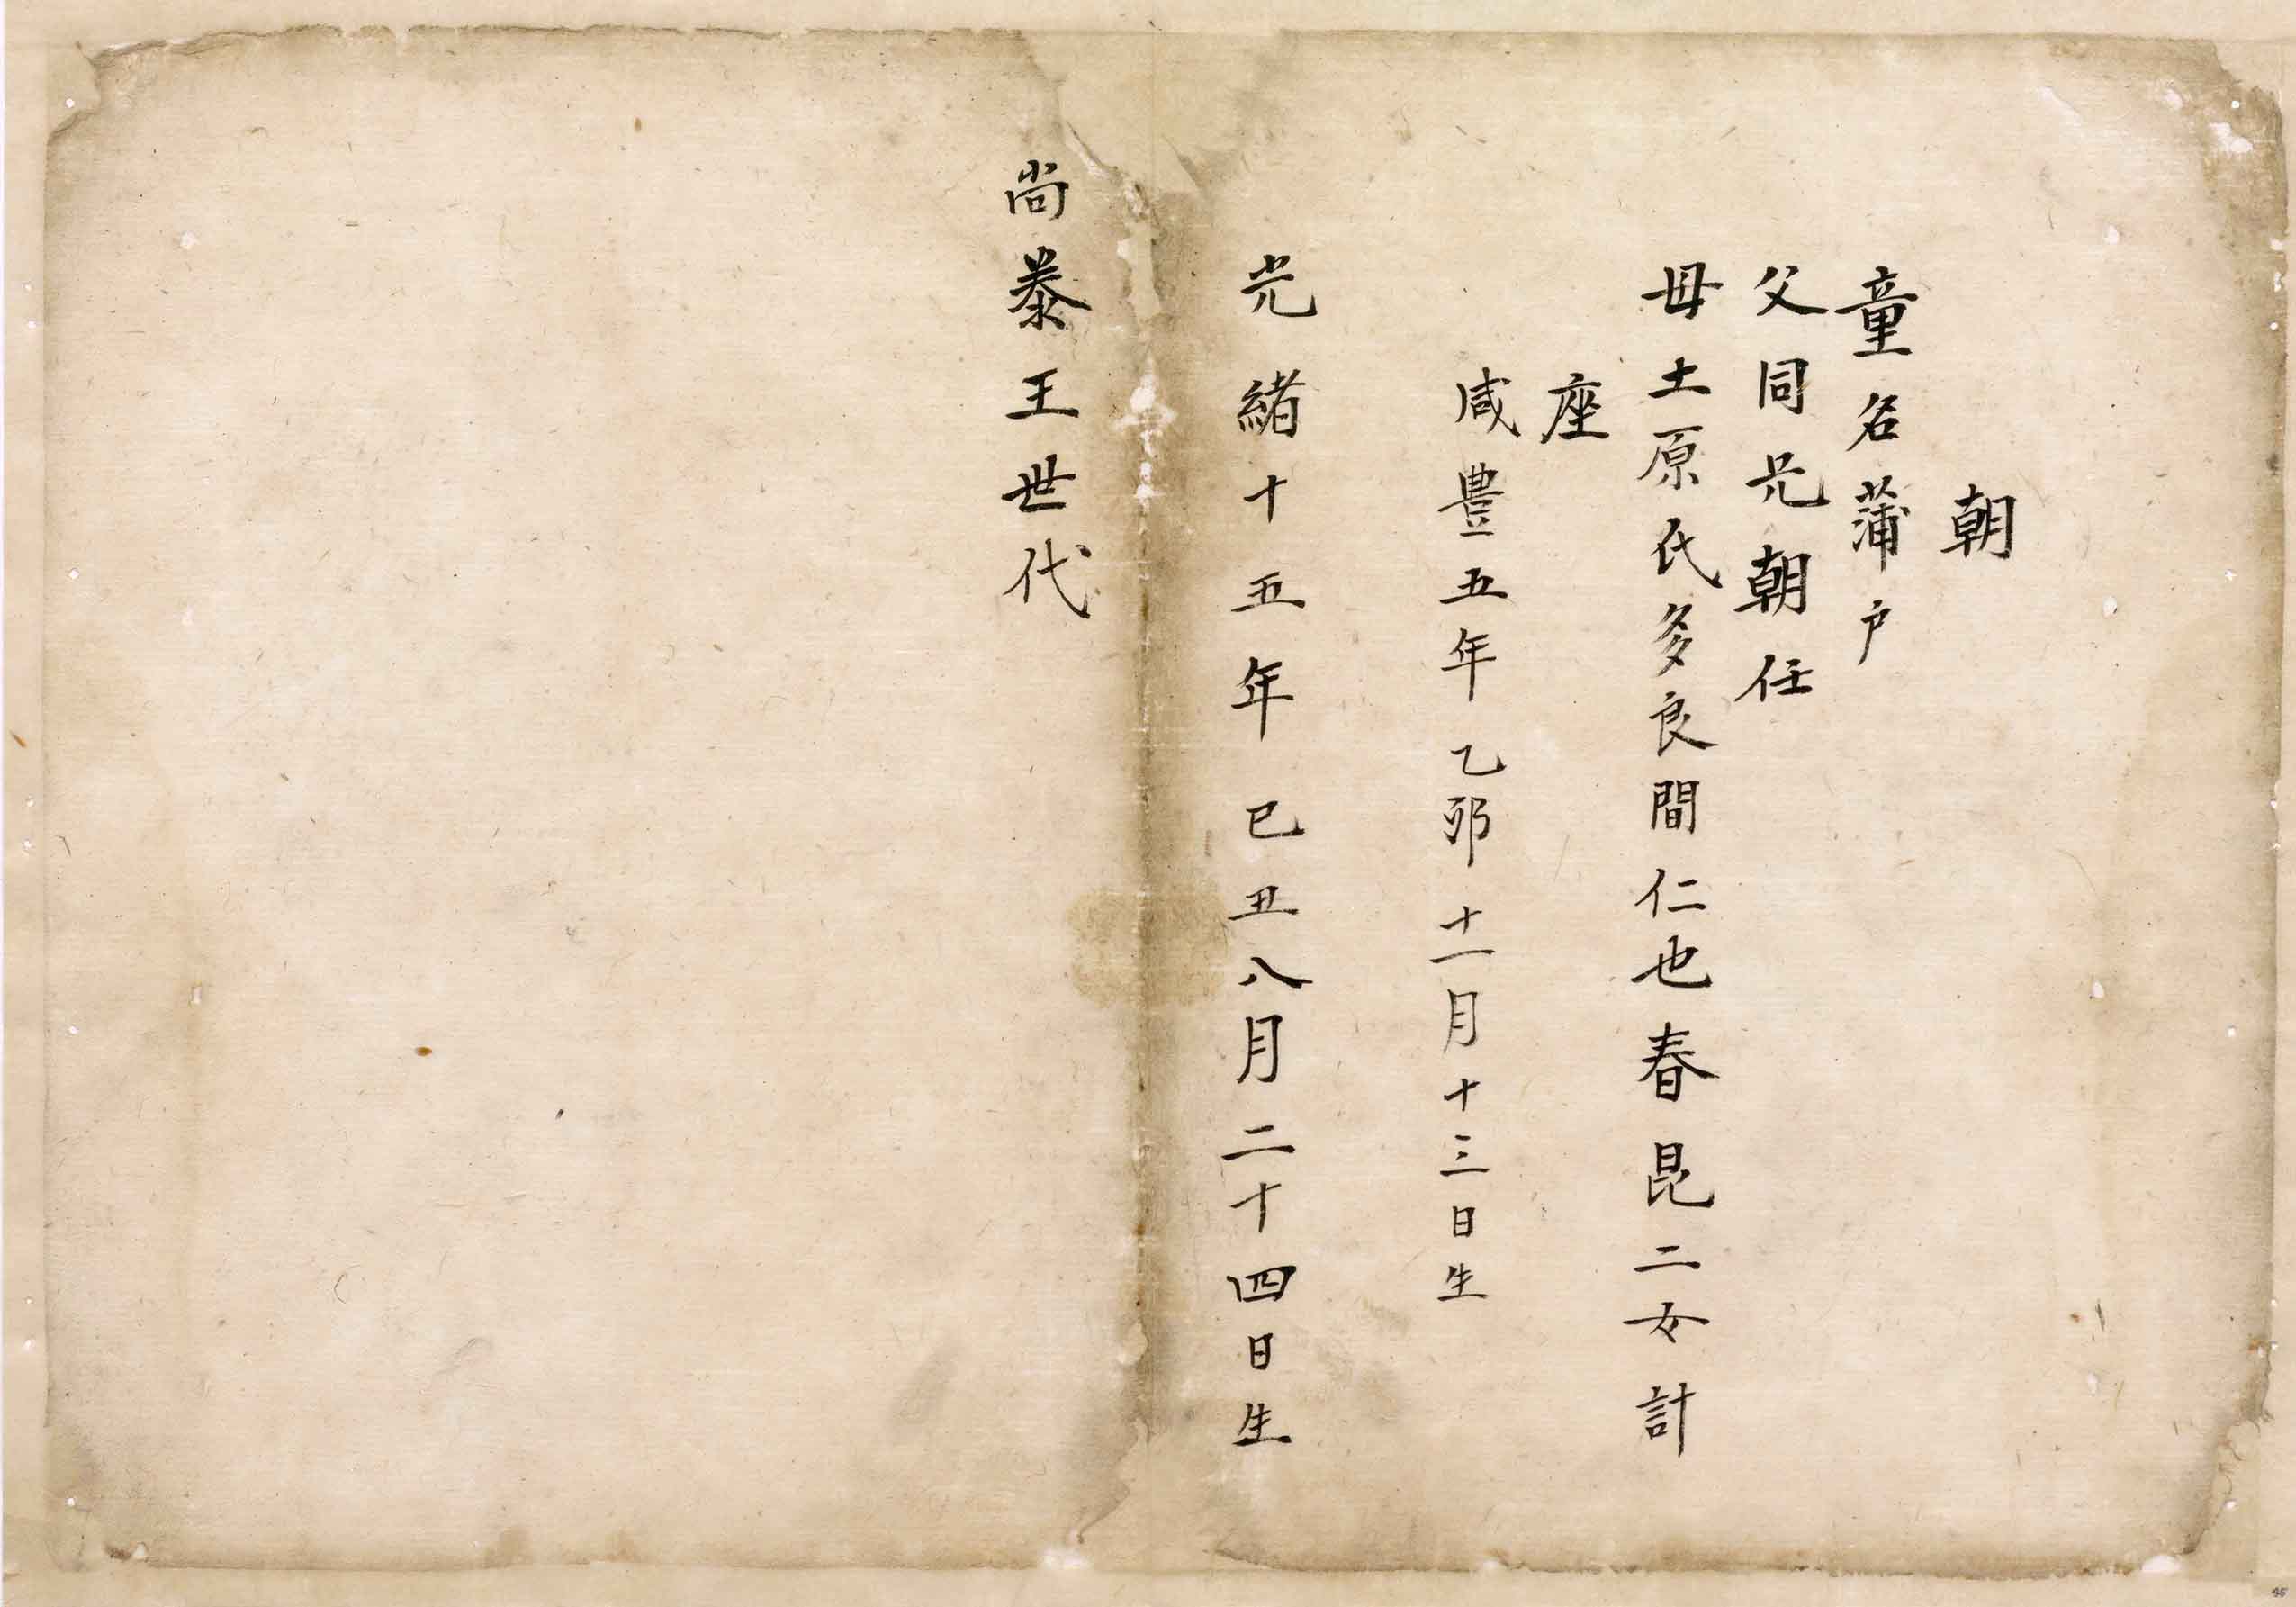 朝
童名蒲戸
父同兄朝任
母土原氏多良間仁也春昆二女計
座
咸豊五年乙夘十一月十三日生
光緒十五年已丑八月二十四日生
尚泰王世代
45